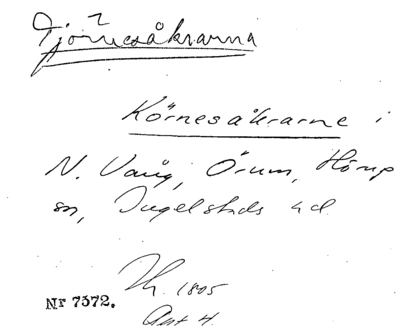 ?
Tjörnesåkrarna
Körnesåkrarne i
N. Vång, Örum, Hörup
sn, Ingelstads hd
Nr 7372. 1805